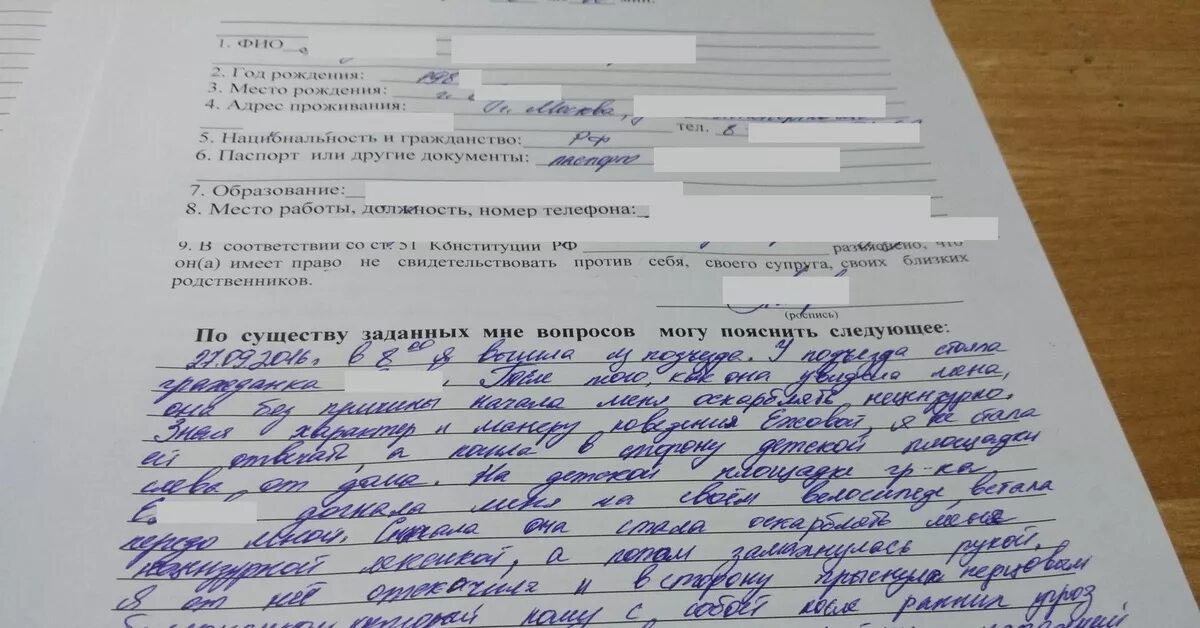 мин.
1. ФИО
2. Год рождения: 198
3. Место рождения: г.
4. Адрес проживания: г. Москва,
тел. 8
5. Национальность и гражданство: РФ
6. Паспорт или другие документы: паспорт
7. Образование:
8. Место работы, должность, номер телефона:
9. В соответствии со ст. 51 Конституции РФ разъяснено, что
он(а) имеет право не свидетельствовать против себя, своего супруга, своих близких
родственников.
(роспись)
По существу заданных мне вопросов могу пояснить следующее:
27.09.2016г. в 8 00 я вышла из подъезда. У подъезда стояла
гражданка . После того, как она увидела меня,
она без причины начала меня оскарблять нецензурно.
Зная характер и манеру поведения Ежовой, я не стала
ей отвечать, а пошла в сторону детской площадки
слева от дома. На детской площадке гр-ка
Е. догнала меня на своём велосипеде, встала
передо мной. Сначала она стала оскарблять меня
нецензурной лексикой, а потом замахнулась рукой.
Я от неё отскочила и в сторону прыснула перцовым
который ношу с собой после ранних угроз